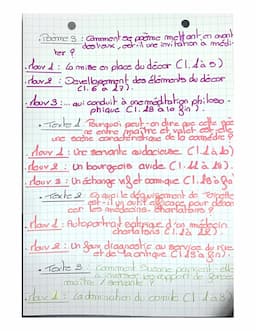 • Poème 3 : Comment se poème mettant en avant
des lieux, est-il une invitation à médi-
ter ?
Mouv 1 : La mise en place du décor (l. 1 à 5)
Mouv 2 : Developpement des éléments du décor
(l. 6 à 17).
Mouv 3 : ... qui conduit à une méditation philoso-
phique (l. 18 à la fin).
• Texte 1 : Pourquoi peut-on dire que cette
ne entre maître et valet est-elle
une scène caractéristique de la comédie ?
Mouv 1 : Une servante audacieuse (l. 1 à 10)
Mouv 2 : Un bourgeois avide (l. 11 à 18).
Mouv 3 : Un échange vif et comique (l. 18 à fin)
• Texte 2 : En quoi le déguisement de Toinette
est-il un outil efficace pour dénon-
cer les médecins charlatans ?
Mouv 1 : Autoportrait satirique d'un médecin
charlatans (l. 1 à 17).
Mouv 2 : Un faux diagnostic au service du rire
et de la critique (l. 18 à fin).
• Texte 3 : Comment Suzanne parvient-elle
à inverser les rapport de force
maître / servante ?
Mouv 1 : La domination du comte (l. 1 à 8)